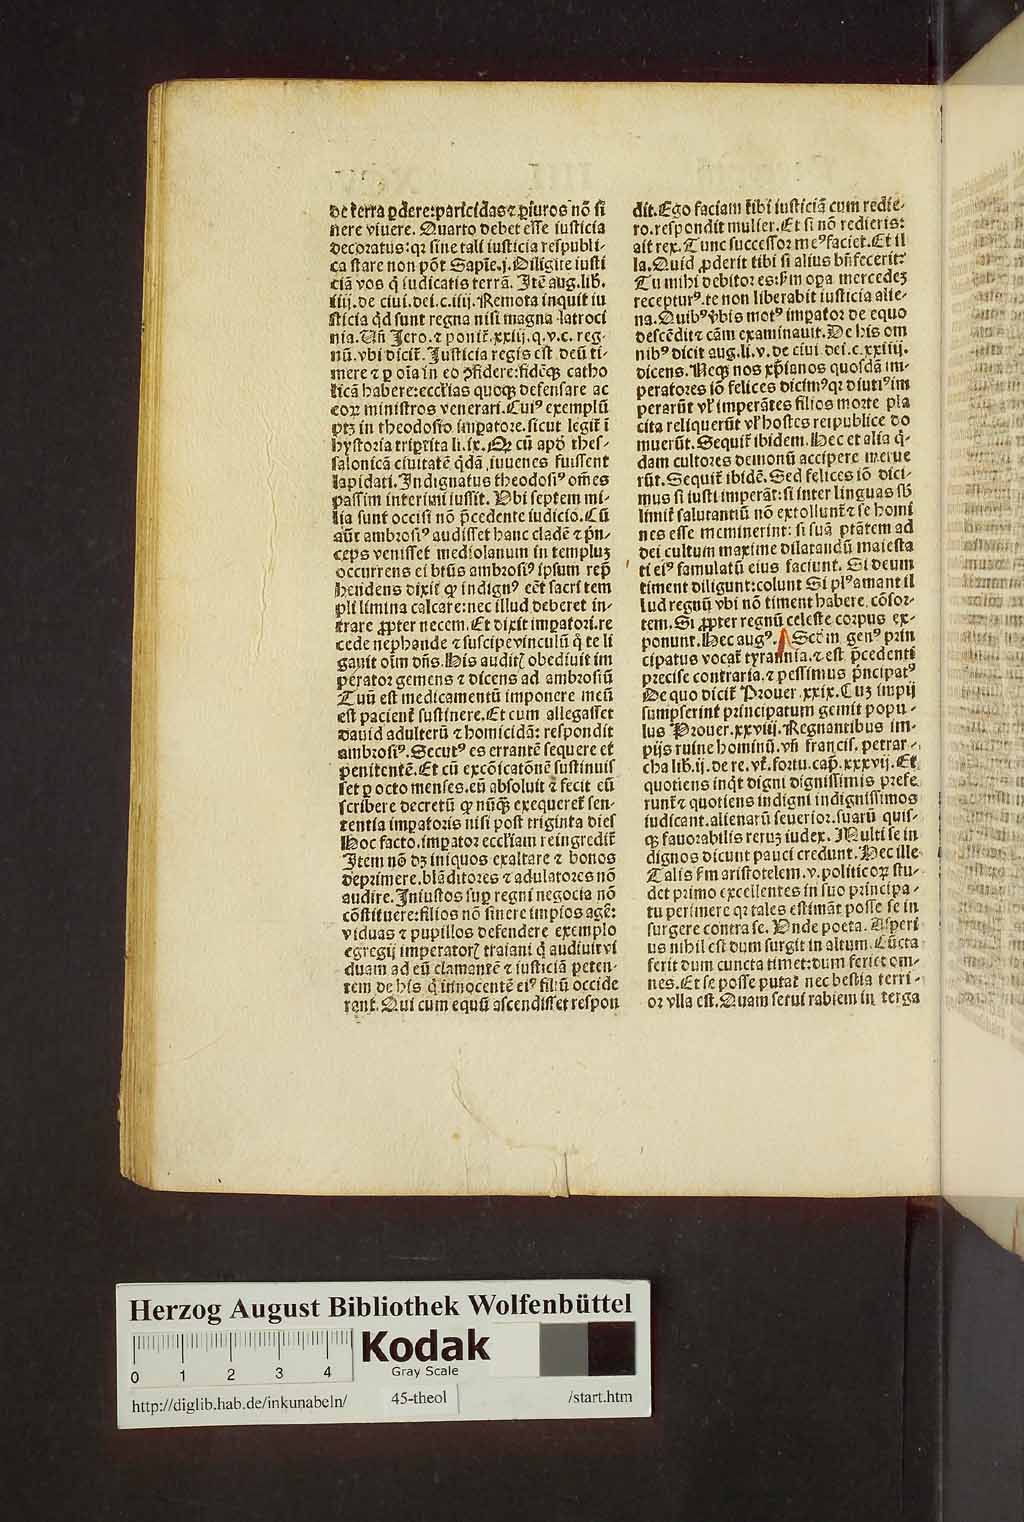 de terra ꝑdere: paricidas ⁊ ꝑiuros nõ si
nere viuere. Quarto debet esse iusticia
decoratus: qꝛ sine tali iusticia respubli-
ca stare non põt Sapiẽ.j. Diligite iusti
ciã vos q̃ iudicatis terrã. Itẽ aug. lib.
iiij. de ciui. dei. c. iiij. Remota inquit iu
sticia q̃d sunt regna nisi magna latroci
nia. Uñ Jero. ⁊ poniť. xxiij. q. v. c. reg-
nũ. vbi diciť. Justicia regis est deũ ti-
mere ⁊ ꝑ oĩa in eo ꝯfidere: fidẽqꝫ catho
licã habere: eccl̃ias quoqꝫ defensare ac
eoꝝ ministros venerari. Cuiꝰ exemplũ
ptꝫ in theodosio imꝑatore. sicut legiť ĩ
hystoria triꝑtita li. ix. Qꝛ cũ apd̃ thes-
salonicã ciuitatẽ q̃dã iuuenes fuissent
lapidati. Indignatus theodosiꝰ om̃es
passim interimi iussit. Ubi septem mi-
lia sunt occisi nõ p̃cedente iudicio. Cũ
aũt ambrosiꝰ audisset hanc cladẽ ⁊ p̃n-
ceps venisset mediolanum in templuꝫ
occurrens ei btũs ambrosiꝰ ipsum rep̃
hendens dixit ꝙ indignꝰ eẽt sacri tem
pli limina calcare: nec illud deberet in-
trare ꝓpter necem. Et dixit imꝑatori. re
cede nephande ⁊ suscipe vinculũ q̃ te li
gauit oĩm dñs. His auditꝭ obediuit im
perator gemens ⁊ dicens ad ambrosiũ
Tuũ est medicamentũ imponere meũ
est pacienť sustinere. Et cum allegasset
dauid adulterũ ⁊ homicidã: respondit
ambrosiꝰ. Secutꝰ es errantẽ sequere et
penitentẽ. Et cũ excõicatõnẽ sustinuis
set ꝑ octo menses. eũ absoluit ⁊ fecit eũ
scribere decretũ ꝙ nũqꝫ exequereť sen-
tentia imꝑatoris nisi post triginta dies
Hoc facto. imꝑator eccl̃iam reingrediť
Item nõ dꝫ iniquos exaltare ⁊ bonos
deprimere. blãditores ⁊ adulatores nõ
audire. Iniustos suꝑ regni negocia nõ
cõstituere: filios nõ sinere impios agẽ:
viduas ⁊ pupillos defendere exemplo
egregij imperatorꝭ traiani q̃ audiuit vi
duam ad eũ clamantẽ ⁊ iusticiã peten-
tem de his q̃ innocentẽ eiꝰ filiũ occide
rant. Qui cum equũ ascendisset respon
dit. Ego faciam tibi iusticiã cum redie-
ro. respondit mulier. Et si nõ redieris:
ait rex. Tunc successor meꝰ faciet. Et il
la. Quid ꝓderit tibi si alius bñfecerit:
Tu mihi debitor es: ẜm oꝑa mercedeꝫ
recepturꝰ. te non liberabit iusticia alie-
na. Quibꝰ v̾bis motꝰ imꝑator de equo
descẽdit ⁊ cãm examinauit. De his om
nibꝰ dicit aug. li. v. de ciui dei. c. xxiiij.
dicens. Neqꝫ nos xp̃ianos quosdã im-
peratores iõ felices dicimꝰ qꝛ diutiꝰ im
perarũt vl̾ imperãtes filios morte pla
cita reliquerũt vl̾ hostes reipublice do
muerũt. Sequiť ibidem. Hec et alia q̃-
dam cultores demonũ accipere merue
rũt. Sequiť ibidẽ. Sed felices iõ dici-
mus si iusti imperãt: si inter linguas sb̾
limiť salutantiũ nõ extollunť ⁊ se homi
nes esse meminerint: si suã ptãtem ad
dei cultum maxime dilatandũ maiesta
ti eiꝰ famulatũ eius faciunt. Si deum
timent diligunt: colunt Si plꝰ amant il
lud regnũ vbi nõ timent habere. cõsor-
tem. Si ꝓpter regnũ celeste corpus ex-
ponunt. Hec augꝰ. Scďm genꝰ prin
cipatus vocať tyrannia. ⁊ est p̃cedenti
precise contraria. ⁊ pessimus p̃ncipatꝰ
De quo diciť Prouer. xxix. Cuꝫ impij
sumpserint principatum gemit popu-
lus Prouer. xxviii. Regnantibus im-
pijs ruine hominũ. vñ francis. petrar-
cha lib. ij. de re. vť. fortu. cap̃. xxxvij. Et
quotiens inq̃t digni dignissimis prefe
runť ⁊ quotiens indigni indignissimos
iudicant. alienarũ seuerior. suarũ quis-
qꝫ fauorabilis reruꝫ iudex. Multi se in
dignos dicunt pauci credunt. Hec ille
Talis ẜm aristotelem. v. politicoꝝ stu-
det primo excellentes in suo principa-
tu perimere qꝛ tales estimãt posse se in
surgere contra se. Unde poeta. Asperi
us nihil est dum surgit in altum. Cũcta
ferit dum cuncta timet: dum feriet om-
nes. Et se posse putať nec bestia terri-
or vlla est. Quam serui rabiem in terga
Herzog August Bibliothek Wolfenbüttel
0 1 2 3 4
Kodak
Gray Scale
http://diglib.hab.de/inkunabeln/ 45-theol /start.htm